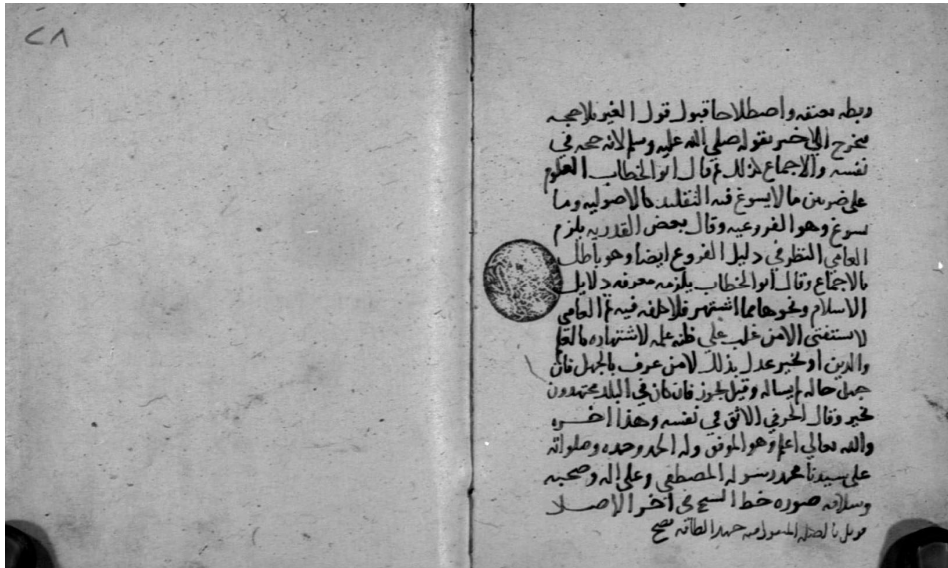 ٢٨
ربطه بعنقه واصطلاحا قبول قول الغير بلا حجه
فيخرج الاخذ بقوله صلي الله عليه وسلم لانه حجه في
نفسه والاجماع كذلك ثم قال ابو الخطاب العلوم
على ضربين ما لا يسوغ فيه التقليد كالاصوليه وما
يسوغ وهو الفروعيه وقال بعض القدريه يلزم
العامي النظر في دليل الفروع ايضا وهو باطل
بالاجماع وقال ابو الخطاب يلزمه معرفه دلايل
الاسلام ونحوها مما اشتهر فلا كلفه فيه ثم العامي
لا يستفتي الا من غلب علي ظنه علمه لاشتهاره بالعلم
والدين او بخبر عدل بذلك لا من عرف بالجهل فان
جهل حاله لم يساله وقيل يجوز فان كان في البلد مجتهدون
تخير وقال الخرقي الاوثق في نفسه وهذا اخره
والله تعالي اعلم وهو الموفق وله الحمد وحده وصلواته
على سيدنا محمد رسوله المصطفي وعلى اله وصحبه
وسلامه صوره خط الشيخ في اخر الاصل
قوبل بالاصل المنقول منه جهد الطاقه فصح